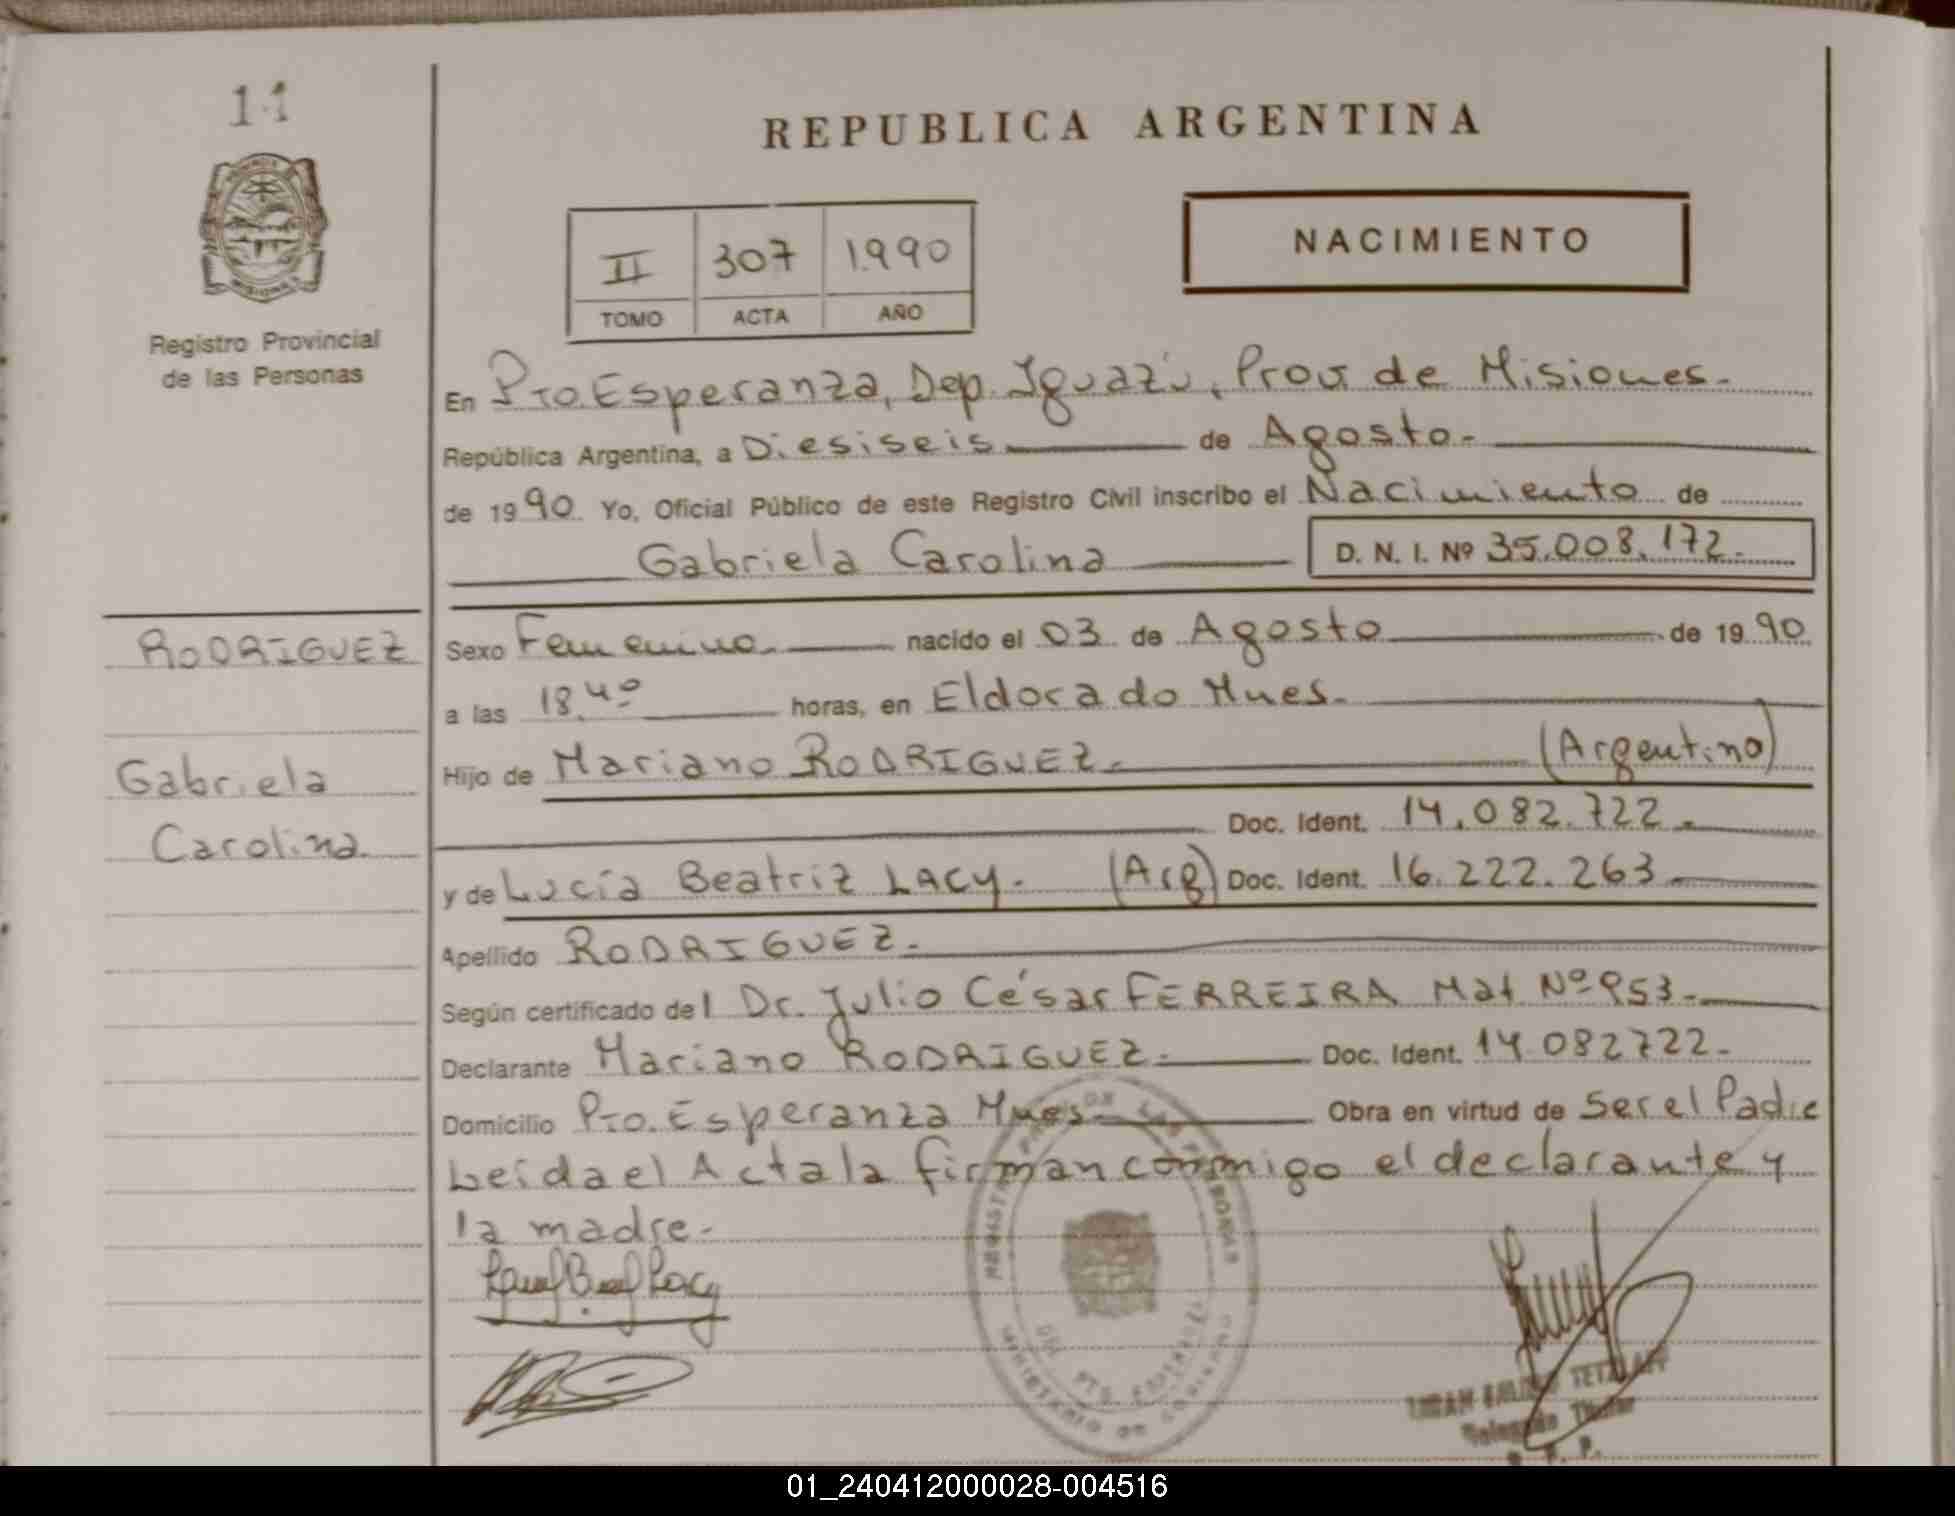 11
REPUBLICA ARGENTINA
MISIONES
Registro Provincial
de las Personas
II 307 1.990
TOMO ACTA AÑO
NACIMIENTO
En Pto. Esperanza, Dep. Iguazú, Prov de Misiones.
República Argentina, a Diesiseis de Agosto.
de 1990 Yo, Oficial Público de este Registro Civil inscribo el Nacimiento de
Gabriela Carolina D. N. I. Nº 35.008.172.
RODRIGUEZ
Sexo Femenino. nacido el 03 de Agosto de 1990
a las 18.40 horas, en Eldorado Mnes.
Gabriela
Carolina.
Hijo de Mariano RODRIGUEZ. (Argentino)
Doc. Ident. 14.082.722.
y de Lucía Beatriz LACY. (Arg) Doc. Ident. 16.222.263.
Apellido RODRIGUEZ.
Según certificado del Dr. Julio César FERREIRA Mat Nº 953.
Declarante Mariano RODRIGUEZ. Doc. Ident. 14.082722.
Domicilio Pto. Esperanza Mnes. Obra en virtud de Ser el Padre
Leida el Acta la firman conmigo el declarante y
la madre.
REGISTRO PROV. DE LAS PERSONAS
MINISTERIO DE GOBIERNO
01_240412000028-004516